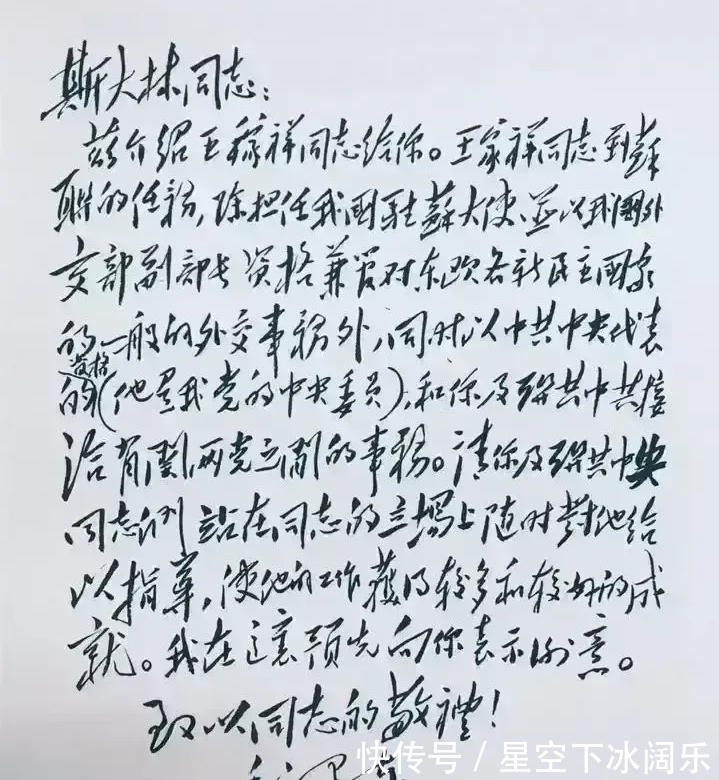 斯大林同志：
兹介绍王稼祥同志给你。王家祥同志到蘇
联的任務，除担任我國駐蘇大使，並以我國外
交部副部长资格兼管对东欧各新民主國家
的一般的外交事務外，同时以中共中央代表
资格
的(他是我党的中央委員)，和你及联共中共接
洽有関两党之間的事務。请你及联共中央
同志们站在同志的立場上随时对他给
以指導，使他的工作獲得较多和较好的成
就。我在這裏预先向你表示谢意。
致以同志的敬禮！
毛泽東
快传号 / 星空下冰阔乐